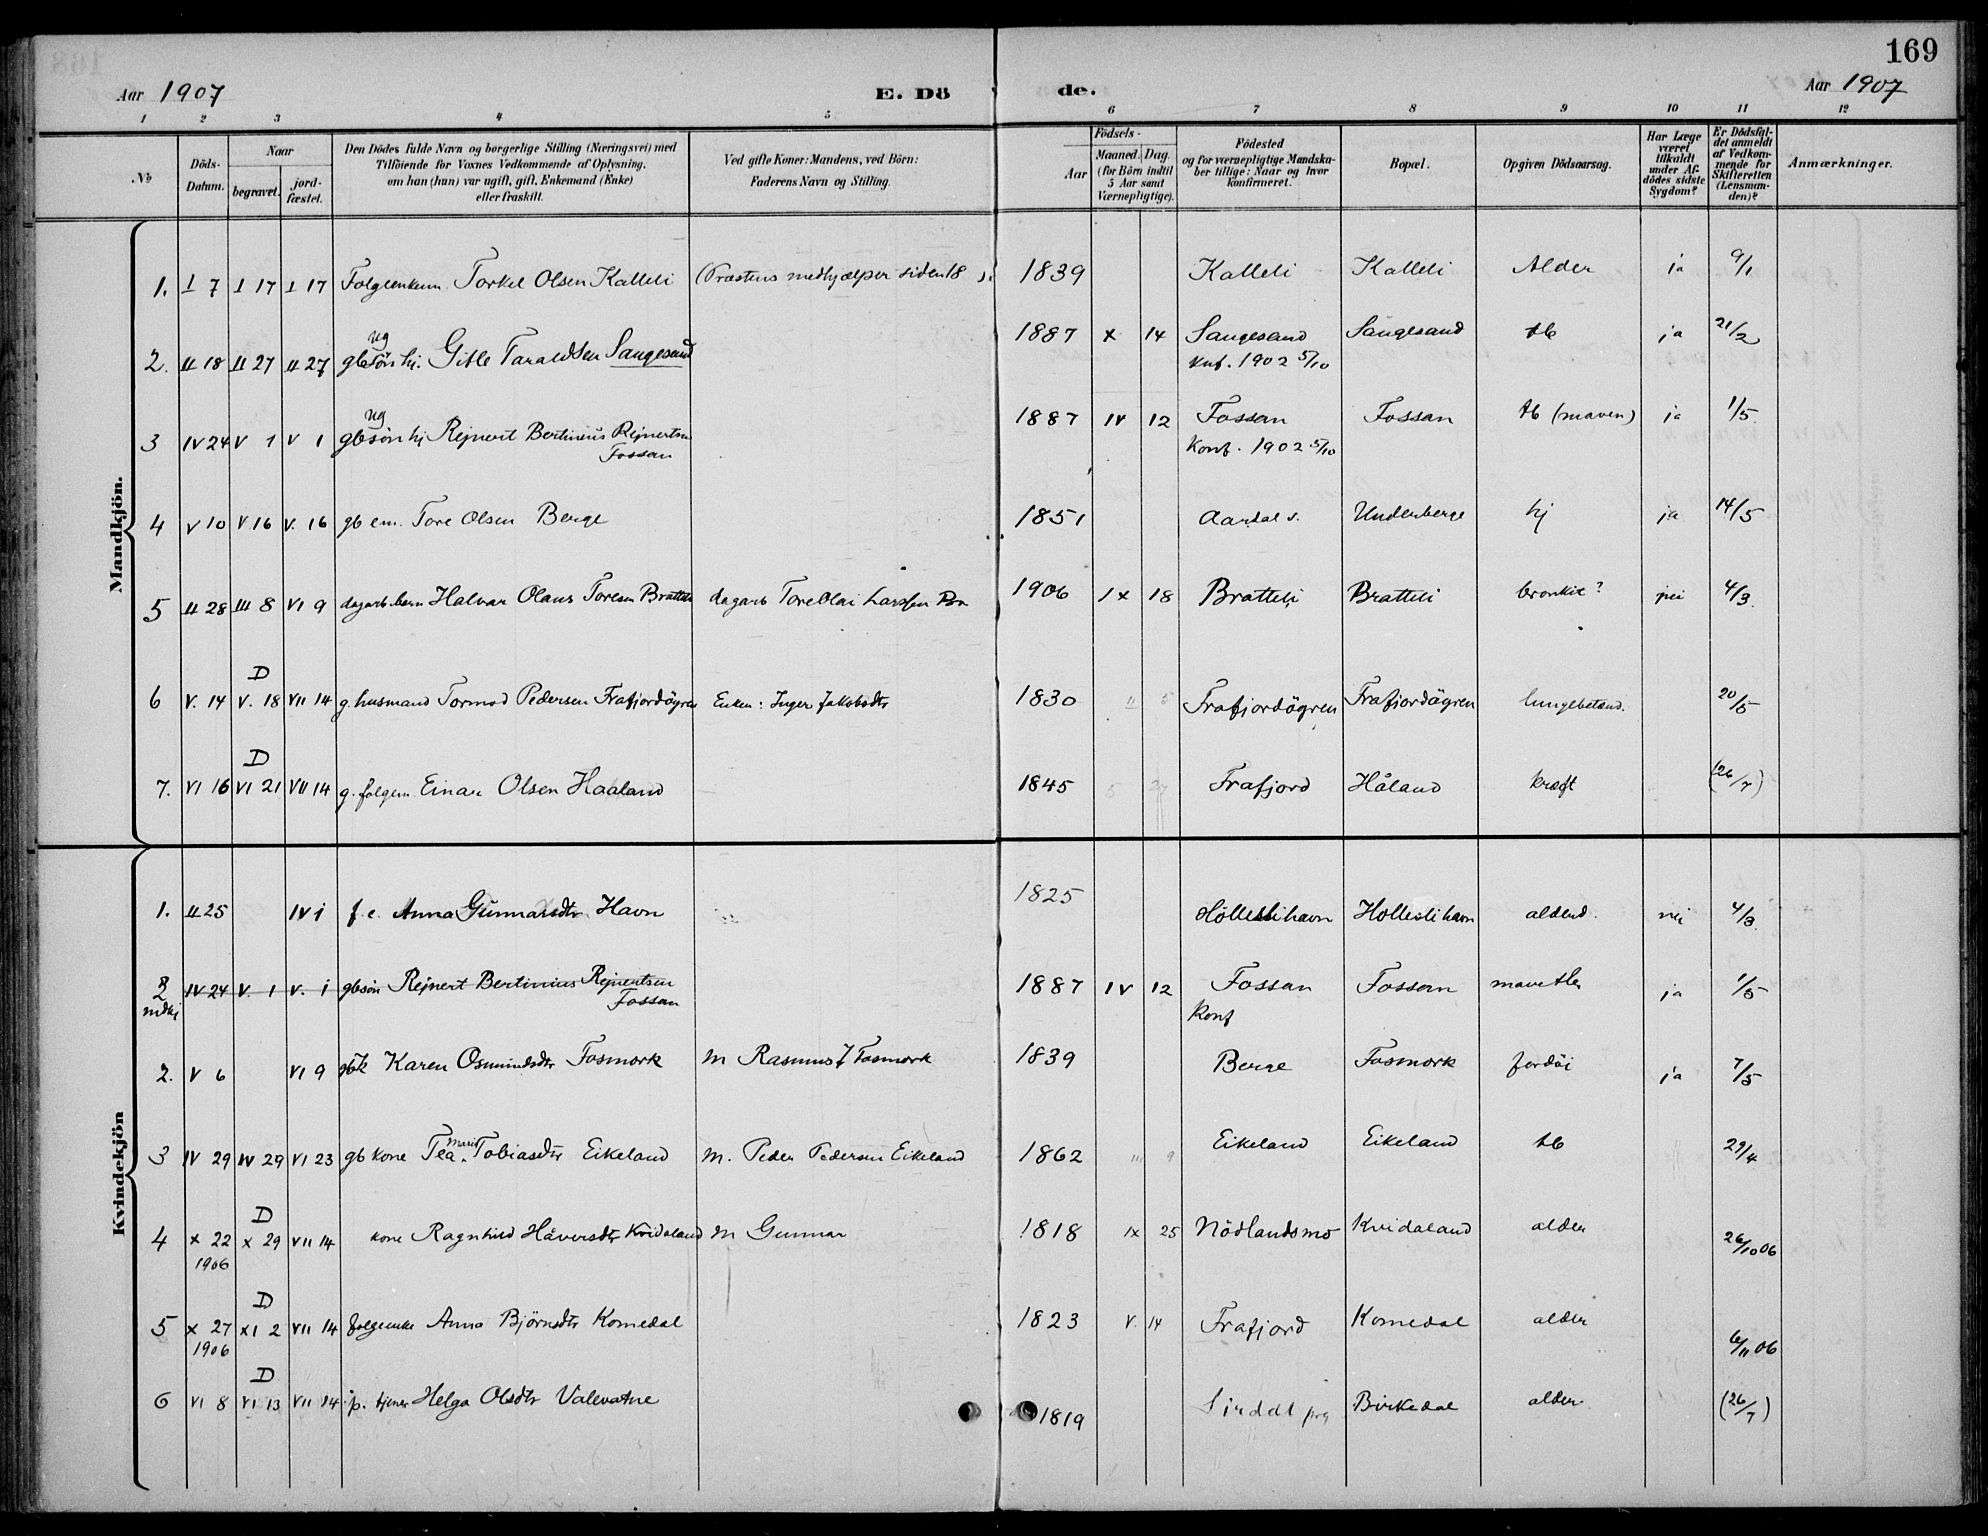 169
Aar 1907 E. Dö de. Aar 1907
1 2 3 4 5 6 7 8 9 10 11 12
No
Döds-Datum.
Naar
begravet.
jord-fæstet.
Den Dödes fulde Navn og borgerlige Stilling (Næringsvei) med
Tilföiende for Voxnes Vedkommende af Oplysning,
om han (hun) var ugift, gift, Enkemand (Enke)
eller fraskilt.
Ved gifte Koner: Mandens, ved Börn:
Faderens Navn og Stilling.
Födsels-
Aar
Maaned. Dag.
(for Börn indtil
5 Aar samt
Værnepligtige).
Födested
og for værnepligtige Mandska-
ber tillige: Naar og hvor
konfirmeret.
Bopæl.
Opgiven Dödsaarsag.
Har Læge
været
tilkaldt
under Af-
dödes sidste
Sygdom?
Er Dödsfal-
det anmeldt
af Vedkom-
mende for
Skifteretten
(Lensman-
den)?
Anmærkninger.
Mandkjön.
1. I 7 I 17 I 17 Torkel Olsen Kalleli (Præstens medhjælper siden 18 ). 1839 Kalleli Kalleli Alder ja 9/1
ug
2. II 18 II 27 II 27 gbsön hj. Gitle Taraldsen Saugesand 1887 X 14 Saugesand Saugesand tb ja 21/2
1902 5/10
ug
3 IV 24 V 1 V 1 gbsön hj Rejnert Bertinius Rejnertsen 1887 IV 12 Fossan Fossan tb (maven) ja 1/5.
Fossan Konf. 1902 5/10
4 V 10 V 16 V. 16 gb em. Tore Olsen Berge 1851 Aardal s. Underberge hj ja 14/5
5 II 28 III 8 VI 9 dagarb. barn Halvar Olaus Toresen Bratteli dagarb Tore Olai Larssen 1906 IX 18 Bratteli Bratteli bronkit? nei 4/3.
D
6 V. 14 V. 18 VII 14 g. husmand Tormod Pedersen Frafjordögren Enken: Inger Jakobsdtr 1830 II 5 Frafjordögren Frafjordögren lungebetænd. 20/5
D
7. VI 16 VI 21 VII 14 g. folgem. Einar Olsen Haaland 1845 5 27 Frafjord Håland kræft (26/7)
Kvindekjön
1. II 25 IV 1 f. e. Anna Gunnarsdtr Havn 1825 Höllesli havn Hollesli havn alderd. nei 4/3.
2 IV 24 V. 1 V. 1 gbsön Rejnert Bertinius Rejnertsen 1887 IV 12 Fossan Fossan ja 1/5
Fossan Konf
2. V 6 VI 9 gbk Karen Osmundsdtr Fosmork M Rasmus J Fosmork 1839 Berge Fosmork ja 7/5
Marie
3 IV 29 IV 29 VI 23 gb kone Tea Tobiasdtr Eikeland M. Peder Pedersen Eikeland 1862 III 9 Eikeland Eikeland tb 29/4
D
4 X 22 X 29 VII 14 kone Ragnhild Håversdtr Kvidaland M Gunnar 1818 IX 25 Nödlandsmo Kvidaland alder 26/10 06
1906
D
5 X 27 XI 2 VII 14 folgeenke Anna Björnsdtr Komedal 1823 V. 14 Frafjord Komedal alder 6/11 06
1906
D
6 VI 8 VI 13 VII 14 p. tjener Helga Olsdtr Valevatne 1819 Sirdal prg Birkedal alder (26/7)